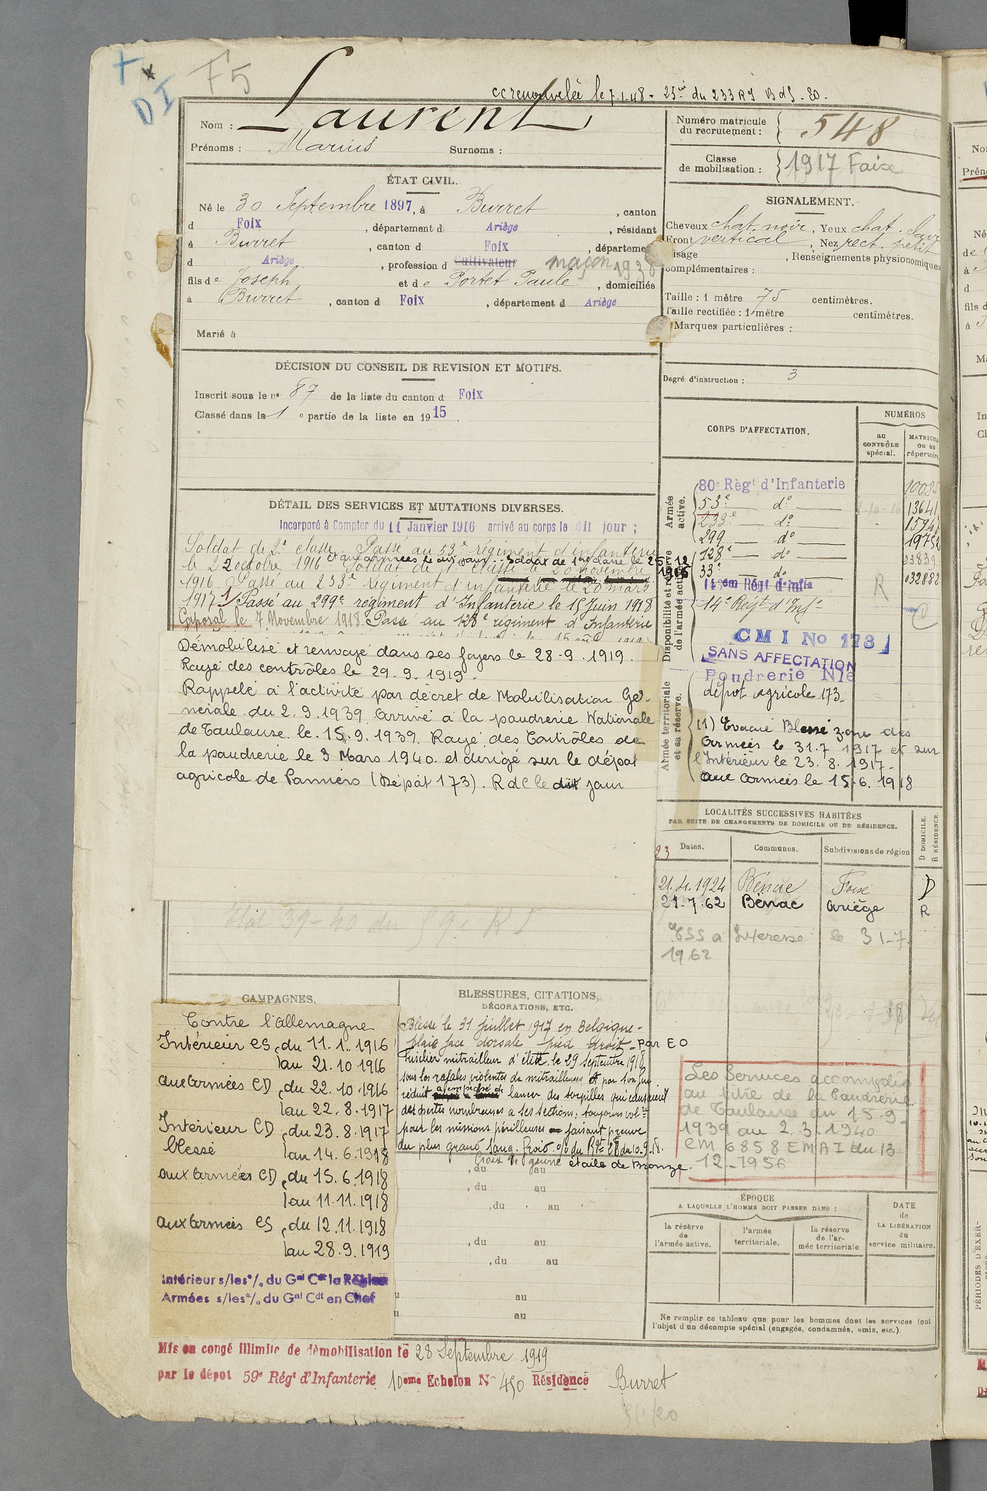 DI
F5
renouvelée le 7.1.48 - 23e du 233 RI
Nom : Laurent
Prénoms : Marius Surnoms :
ÉTAT CIVIL.
Né le 30 Septembre 1897, à Burret, canton
d Foix, département d Ariège, résidant
à Burret, canton d Foix, département
d Ariège, profession d Cultivateur maçon 1938
fils de Joseph et de Portet Paule, domiciliés
à Burret, canton d Foix, département d Ariège
Marié à
DÉCISION DU CONSEIL DE REVISION ET MOTIFS.
Inscrit sous le nº 87 de la liste du canton d Foix
Classé dans la 1 e partie de la liste en 1915.
DÉTAIL DES SERVICES ET MUTATIONS DIVERSES.
Incorporé à Compter du 11 Janvier 1916 arrivé au corps le dit jour ;
Soldat de 2e classe. Passé au 53e régiment d'infanterie
le 22 octobre 1916 Soldat de 1ère classe le 25 12 1916
1916. Passé au 233e régiment d'infanterie le 20 mars
1917 1) Passé au 299e régiment d'Infanterie le 15 Juin 1918
Caporal le 7 Novembre 1918. Passé au 128e régiment d'Infanterie
Démobilisé et renvoyé dans ses foyers le 28-9-1919.
Rayé des contrôles le 29.9.1919.
Rappelé à l'activité par décret de Mobilisation Gé-
nérale du 2.9.1939. Arrivé à la poudrerie Nationale
de Toulouse le 15.9.1939. Rayé des Contrôles de
la poudrerie le 3 Mars 1940 et dirigé sur le dépôt
agricole de Pamiers (Dépôt 173). R d C le dit jour
CAMPAGNES.
Contre l'allemagne
Intérieur CS, du 11.1.1916
au 21.10.1916
aux armées CD, du 22.10.1916
au 22.8.1917
Intérieur CD, du 23.8.1917
blessé au 14.6.1918
aux armées CD, du 15.6.1918
au 11.11.1918
aux armées CS, du 12.11.1918
au 28.9.1919
Intérieur s/les º/o du Gal Cdt la Région
Armées s/les º/o du Gal Cdt en Chef
BLESSURES, CITATIONS,
DÉCORATIONS, ETC.
Blessé le 31 Juillet 1917 en Belgique -
plaie face dorsale pied droit - par E O
Fusilier mitrailleur d'élite le 29 Septembre 1918
sous les rafales violentes de mitrailleuses et par son feu
réduit a empêché de lancer des torpilles qui causaient
des pertes nombreuses a ses sections; toujours volre
pour les missions périlleuses faisant preuve
du plus grand sang-froid
Croix de guerre étoile de Bronze.
, du au
, du au
, du au
, du au
, du au
au
au
Mis en congé illimité de démobilisation le 28 Septembre 1919
par le dépôt 59e Régt d'Infanterie 10ème Échelon Nº 490 Résidence Burret
Numéro matricule
du recrutement : 548
Classe
de mobilisation : 1917 Foix
SIGNALEMENT.
Cheveux chat. noir, Yeux chat. clair
Front vertical, Nez rect. petit
Visage , Renseignements physionomiques
complémentaires :
Taille : 1 mètre 75 centimètres.
Taille rectifiée : 1 mètre centimètres.
Marques particulières :
Degré d'instruction : 3
CORPS D'AFFECTATION.
NUMÉROS
au
CONTRÔLE
spécial.
MATRICULE
OU AU
répertoire
Armée
active.
80e Régt d'Infanterie
53e dº
233e dº
299 dº
128e dº
33e dº
14em Régt d'Infie
14e Regt d'Infie
Disponibilité et réserve
de l'armée active
CMI No 173
SANS AFFECTATION
Poudrerie Nle
dépôt agricole 173.
Armée territoriale
et sa réserve.
(1) Evacué Blessé zone des
armées le 31.7 1917 et sur
l'Intérieur le 23.8.1917 -
aux armées le 15.6.1918
LOCALITÉS SUCCESSIVES HABITÉES
PAR SUITE DE CHANGEMENTS DE DOMICILE OU DE RÉSIDENCE.
Dates. Communes. Subdivisions de région
D DOMICILE.
R RÉSIDENCE.
21.4.1924 Bénac Foix D
21.7.62 Bénac Ariège R
1962
Les Services accomplis
au titre de la Poudrerie
de Toulouse du 15-9-
1939 au 2.3.1940
CM 6858 EMA I du 13-
12-1956
ÉPOQUE
A LAQUELLE L'HOMME DOIT PASSER DANS :
la réserve
de
l'armée active.
l'armée
territoriale.
la réserve
de l'ar-
mée territoriale
DATE
de
LA LIBÉRATION
du
service militaire.
Ne remplir ce tableau que pour les hommes dont les services font
l'objet d'un décompte spécial (engagés, condamnés, omis, etc.).